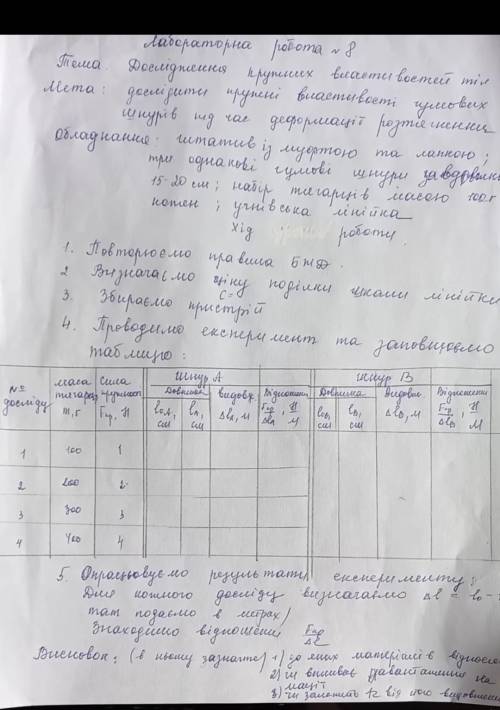 Лабораторна робота №8
Тема. Дослідження пружних властивостей тіл
Мета: дослідити пружні властивості гумових
шнурів під час деформації розтягнення
Обладнання: штатив із муфтою та лапкою;
три однакові гумові шнури завдовжки
15-20 см; набір тягарців масою 100г
кожен; учнівська лінійка
Хід роботи.
1. Повторюємо правила БЖД.
2 Визначаємо ціну поділки шкали лінійки
C=
3. Збираємо пристрій
4. Проводимо експеримент та заповнюємо
таблицю:
№ досліду маса тягарця m, г Сила пружності Fпр, Н Шнур А Шнур В
Довжина видовж. Відношення Довжина Видовж. Відношення
l0A, см lA, см ΔlA, м Fпр/ΔlA, Н/м l0B, см lB, см ΔlB, м Fпр/ΔlB, Н/м
1 100 1
2 200 2
3 300 3
4 400 4
5. Опрацьовуємо результати експерименту:
Для кожного досліду визначаємо Δl = l0 -
тат подаємо в метрах/
Знаходимо відношення Fпр/Δl
Висновок: (в ньому зазначте) 1) до яких матеріалів
2) чи впливає на
мації
3) чи залежить k від його видовження